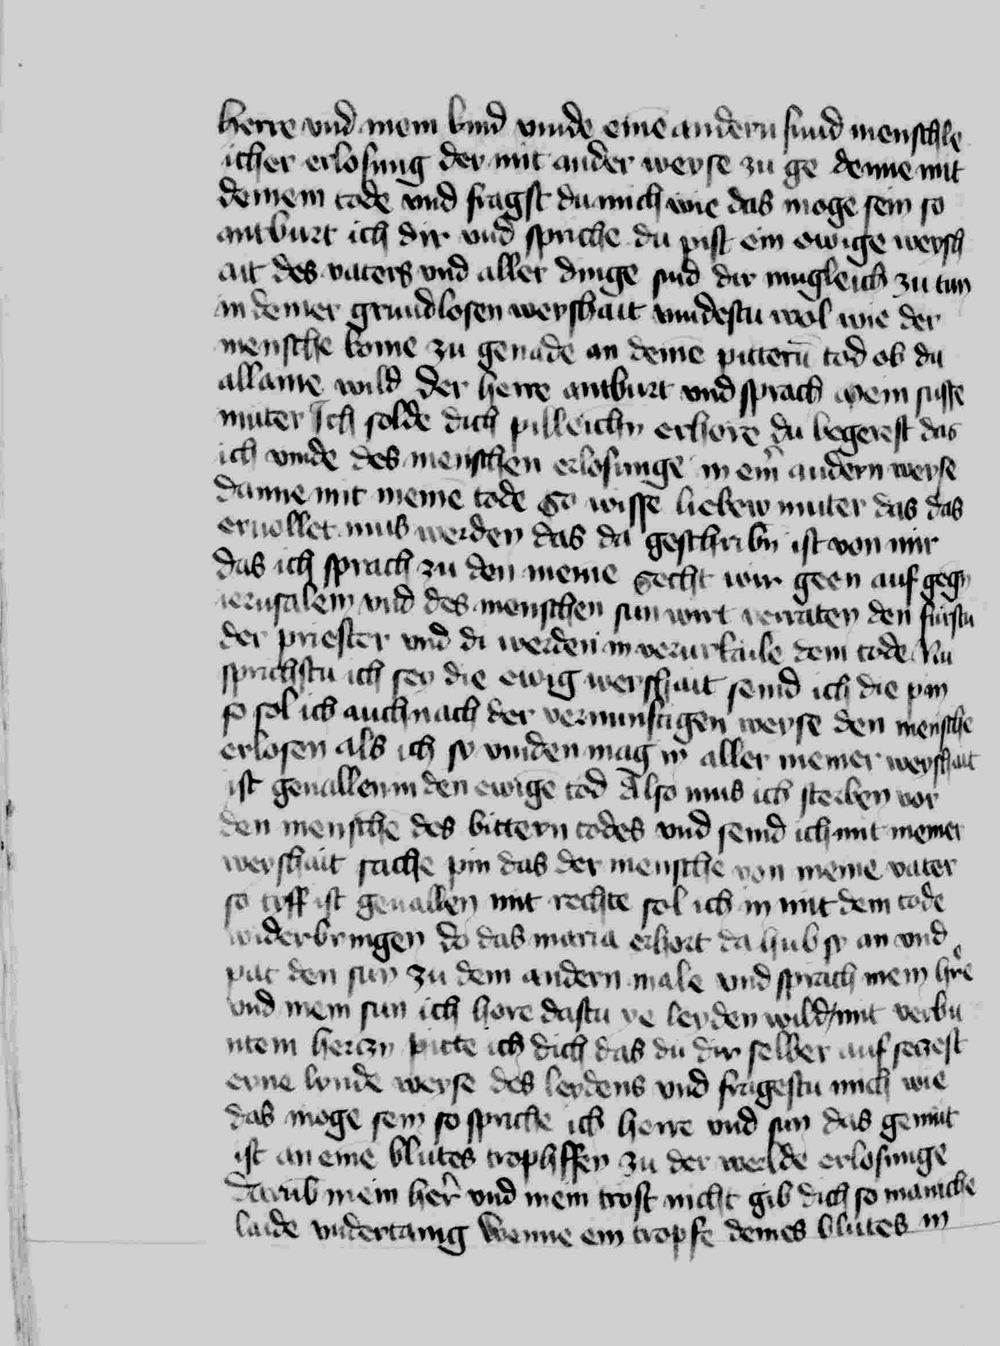 herre vnd mein kind vinde eine andern sund menschle
icher erlosung der mit ander weyse zu ge denne mit
deinem tode vnd fragst du mich wie das moge sein so
antburt ich dir vnd spriche du pist ein ewige weysh
ait des vaters vnd aller dinge sind dir mugleich zu tun
in deiner grundlosen weyshait vindestu wol wie der
mensche kome zu genade an deine pittern̄ tod ob du
allaine wild der herre antburt vnd sprach mein susse
muter Ich solde dich pilleichn erhore du begerest das
ich vinde des menschen erlosunge in ein̄ andern weyse
danne mit meinē tode So wisse liebew muter das das
eruollet mus werden das da geschribn̄ ist von mir
das ich sprach zu den meine Secht wir geen auf gegn
ierusalem vnd des menschen sun wirt verraten den fursten
der priester vnd di werden in verurtaile dem tode Nu
sprichstu ich sey die ewig weyshait seind ich die pin
so sol ich auch nach der vernunftigen weyse den mensche
erlosen als ich sy vinden mag in aller meiner weyshait
ist geuallen in den ewigē tod Also mus ich sterben vor
den mensche des bittern todes vnd seind ich mit meiner
weyshait sache pin das der mensche von meine vater
so tyff ist geuallen mit rechte sol ich in mit dem tode
widerbringen do das maria erhort da hub sy an vnd
pat den sun zu dem andern male vnd sprach mein hr̄e
vnd mein sun ich hore dastu ye leyden wild mit verbu
ntem herczn pitte ich dich das du dir selber auf seczest
eyne lynde weyse des leydens vnd fragestu mich wie
das moge sein so spriche ich herre vnd sun das genuc
ist an eine blutes trophffen zu der werlde erlosunge
Darūb mein her̄ vnd mein trost nicht gib dich so maniche
laide vndertanig wenne ein tropfe deines blutes in